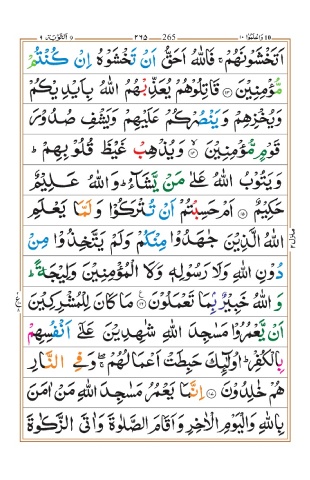 التوبة ٩ ٢٦٥ 265 واعلموا ١٠
اَتَخْشَوْنَهُمْ ۚ فَاللّٰهُ اَحَقُّ اَنْ تَخْشَوْهُ اِنْ كُنْتُمْ
مُّؤْمِنِيْنَ ۝١٣ قَاتِلُوْهُمْ يُعَذِّبْهُمُ اللّٰهُ بِاَيْدِيْكُمْ
وَيُخْزِهِمْ وَيَنْصُرْكُمْ عَلَيْهِمْ وَيَشْفِ صُدُوْرَ
قَوْمٍ مُّؤْمِنِيْنَ ۝١٤ وَيُذْهِبْ غَيْظَ قُلُوْبِهِمْ ؕ
وَيَتُوْبُ اللّٰهُ عَلٰى مَنْ يَّشَآءُ ؕ وَاللّٰهُ عَلِيْمٌ
حَكِيْمٌ ۝١٥ اَمْ حَسِبْتُمْ اَنْ تُتْرَكُوْا وَلَمَّا يَعْلَمِ
اللّٰهُ الَّذِيْنَ جٰهَدُوْا مِنْكُمْ وَلَمْ يَتَّخِذُوْا مِنْ
دُوْنِ اللّٰهِ وَلَا رَسُوْلِهٖ وَلَا الْمُؤْمِنِيْنَ وَلِيْجَةً ؕ
وَاللّٰهُ خَبِيْرٌۢ بِمَا تَعْمَلُوْنَ ۝١٦ مَا كَانَ لِلْمُشْرِكِيْنَ
اَنْ يَّعْمُرُوْا مَسٰجِدَ اللّٰهِ شٰهِدِيْنَ عَلٰٓى اَنْفُسِهِمْ
بِالْكُفْرِ ؕ اُولٰٓئِكَ حَبِطَتْ اَعْمَالُهُمْ ۖۚ وَفِي النَّارِ
هُمْ خٰلِدُوْنَ ۝١٧ اِنَّمَا يَعْمُرُ مَسٰجِدَ اللّٰهِ مَنْ اٰمَنَ
بِاللّٰهِ وَالْيَوْمِ الْاٰخِرِ وَاَقَامَ الصَّلٰوةَ وَاٰتَى الزَّكٰوةَ